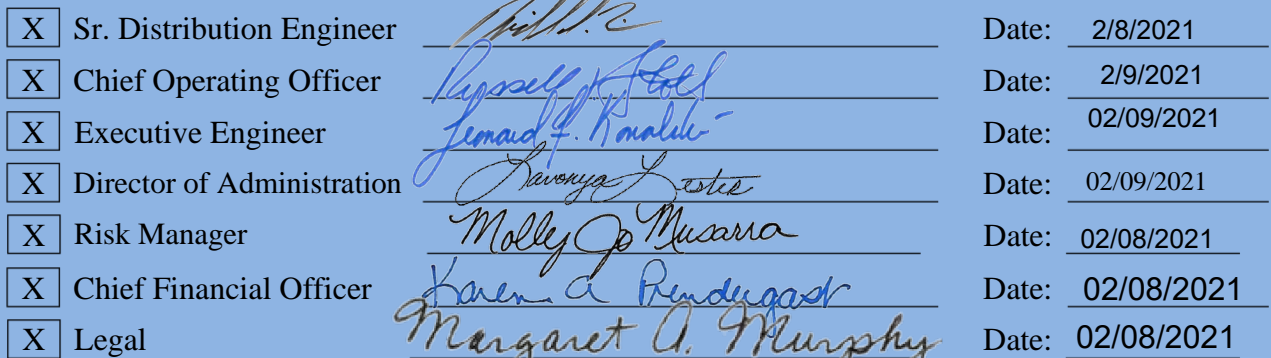 X Sr. Distribution Engineer Date: 2/8/2021
X Chief Operating Officer Russell J Stoll Date: 2/9/2021
X Executive Engineer Leonard F. Kowalski Date: 02/09/2021
X Director of Administration Lavonya Lester Date: 02/09/2021
X Risk Manager Molly Jo Musarra Date: 02/08/2021
X Chief Financial Officer Karen A Prendergast Date: 02/08/2021
X Legal Margaret A. Murphy Date: 02/08/2021